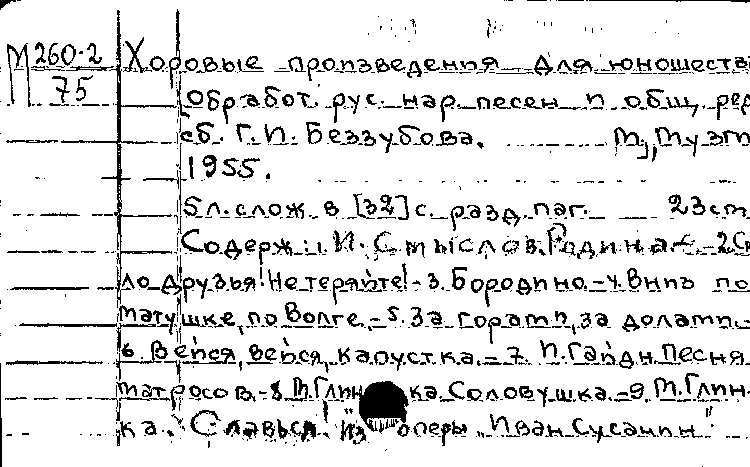 М 260-2
75
Хоровые произведения для юношества
Обработ. рус. нар. песен и общ. ред
сб. Г. И. Беззубова. М., Музг
1955.
5 л. слож. в [32] с. разд. паг. 23 см
Содерж.: И. Смыслов. Родина. - 2.
ло друзья! Не теряйте! - 3. Бородино. - 4. Вниз по
матушке, по Волге. - 5. За горами, за долами. -
6. Вейся, вейся, капустка. - 7. И. Гайдн. Песня
матросов. - 8. М. Глинка. Соловушка. - 9. М. Глин-
ка. Славься! Из оперы „Иван Сусанин"